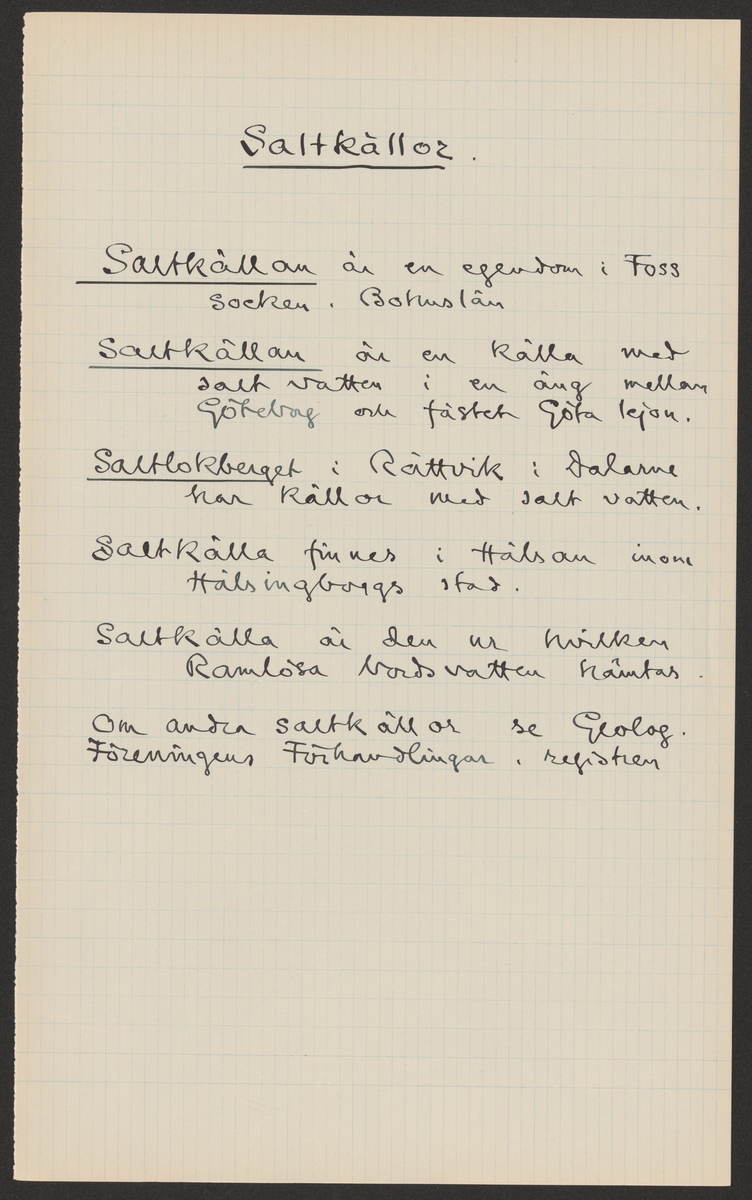 Saltkällor.
Saltkällan är en egendom i Foss
socken. Bohuslän
Saltkällan är en källa med
salt vatten i en äng mellan
Göteborg och fästet Göta lejon.
Saltlokberget i Rättvik i Dalarne
har källor med salt vatten.
Saltkälla finnes i Hälsan inom
Hälsingborgs stad.
Saltkälla är den ur hvilken
Ramlösa bordsvatten hämtas.
Om andra saltkällor se Geolog.
Föreningens Förhandlingar, registren